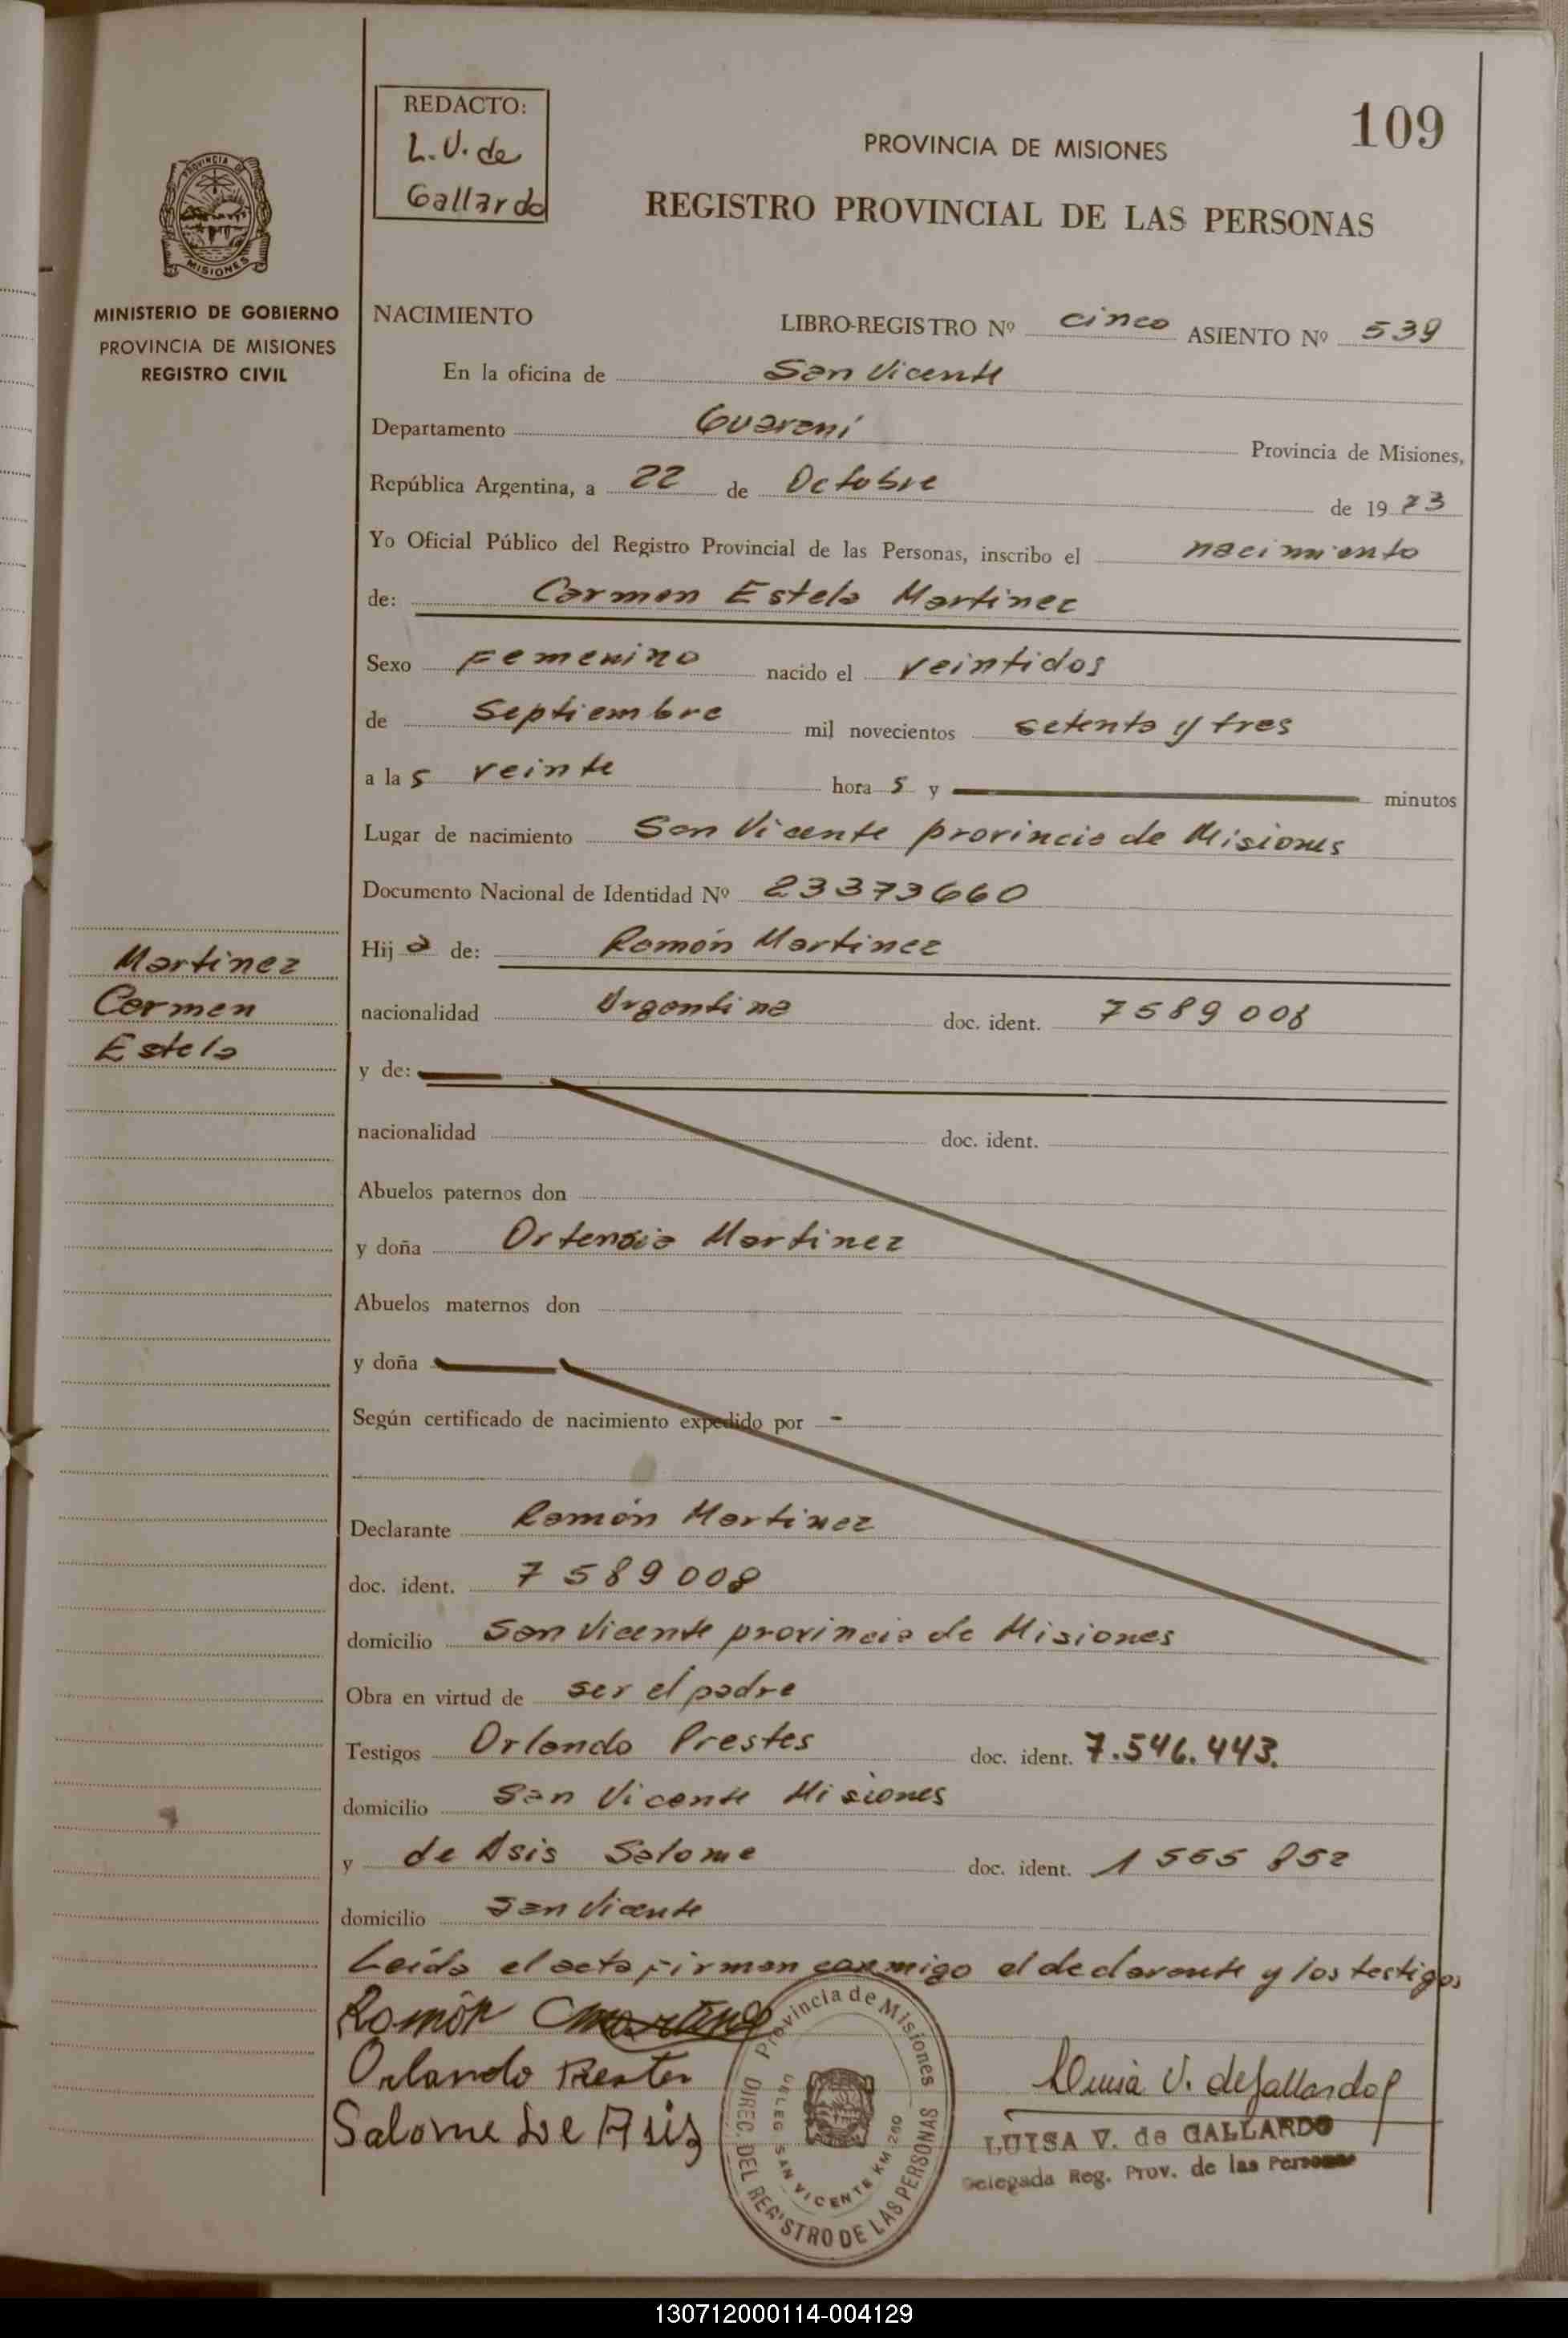 REDACTO:
L.V. de
Gallardo
109
PROVINCIA DE MISIONES
REGISTRO PROVINCIAL DE LAS PERSONAS
PROVINCIA DE
MISIONES
MINISTERIO DE GOBIERNO
PROVINCIA DE MISIONES
REGISTRO CIVIL
NACIMIENTO LIBRO-REGISTRO Nº cinco ASIENTO Nº 539
En la oficina de San Vicente
Departamento Guaraní Provincia de Misiones,
República Argentina, a 22 de Octubre de 1973
Yo Oficial Público del Registro Provincial de las Personas, inscribo el nacimiento
de: Carmen Estela Martinez
Sexo Femenino nacido el veintidos
de Septiembre mil novecientos setenta y tres
a las veinte horas y minutos
Lugar de nacimiento San Vicente provincia de Misiones
Documento Nacional de Identidad Nº 23373660
Hija de: Ramón Martinez
nacionalidad Argentina doc. ident. 7589008
y de:
nacionalidad doc. ident.
Abuelos paternos don
y doña Ortensia Martinez
Abuelos maternos don
y doña
Según certificado de nacimiento expedido por -
Declarante Ramón Martinez
doc. ident. 7589008
domicilio San Vicente provincia de Misiones
Obra en virtud de ser el padre
Testigos Orlando Prestes doc. ident. 7.546.443.
domicilio San Vicente Misiones
y de Asis Salome doc. ident. 1565852
domicilio San Vicente
Leída el acta firman conmigo el declarante y los testigos
Martinez
Carmen
Estela
Ramón
Orlando Prestes
Salome De Asis
Provincia de Misiones
DIREC. DEL REGISTRO DE LAS PERSONAS
DELEG. SAN VICENTE KM 260
Luisa V. de Gallardo
LUISA V. de GALLARDO
Delegada Reg. Prov. de las Personas
130712000114-004129